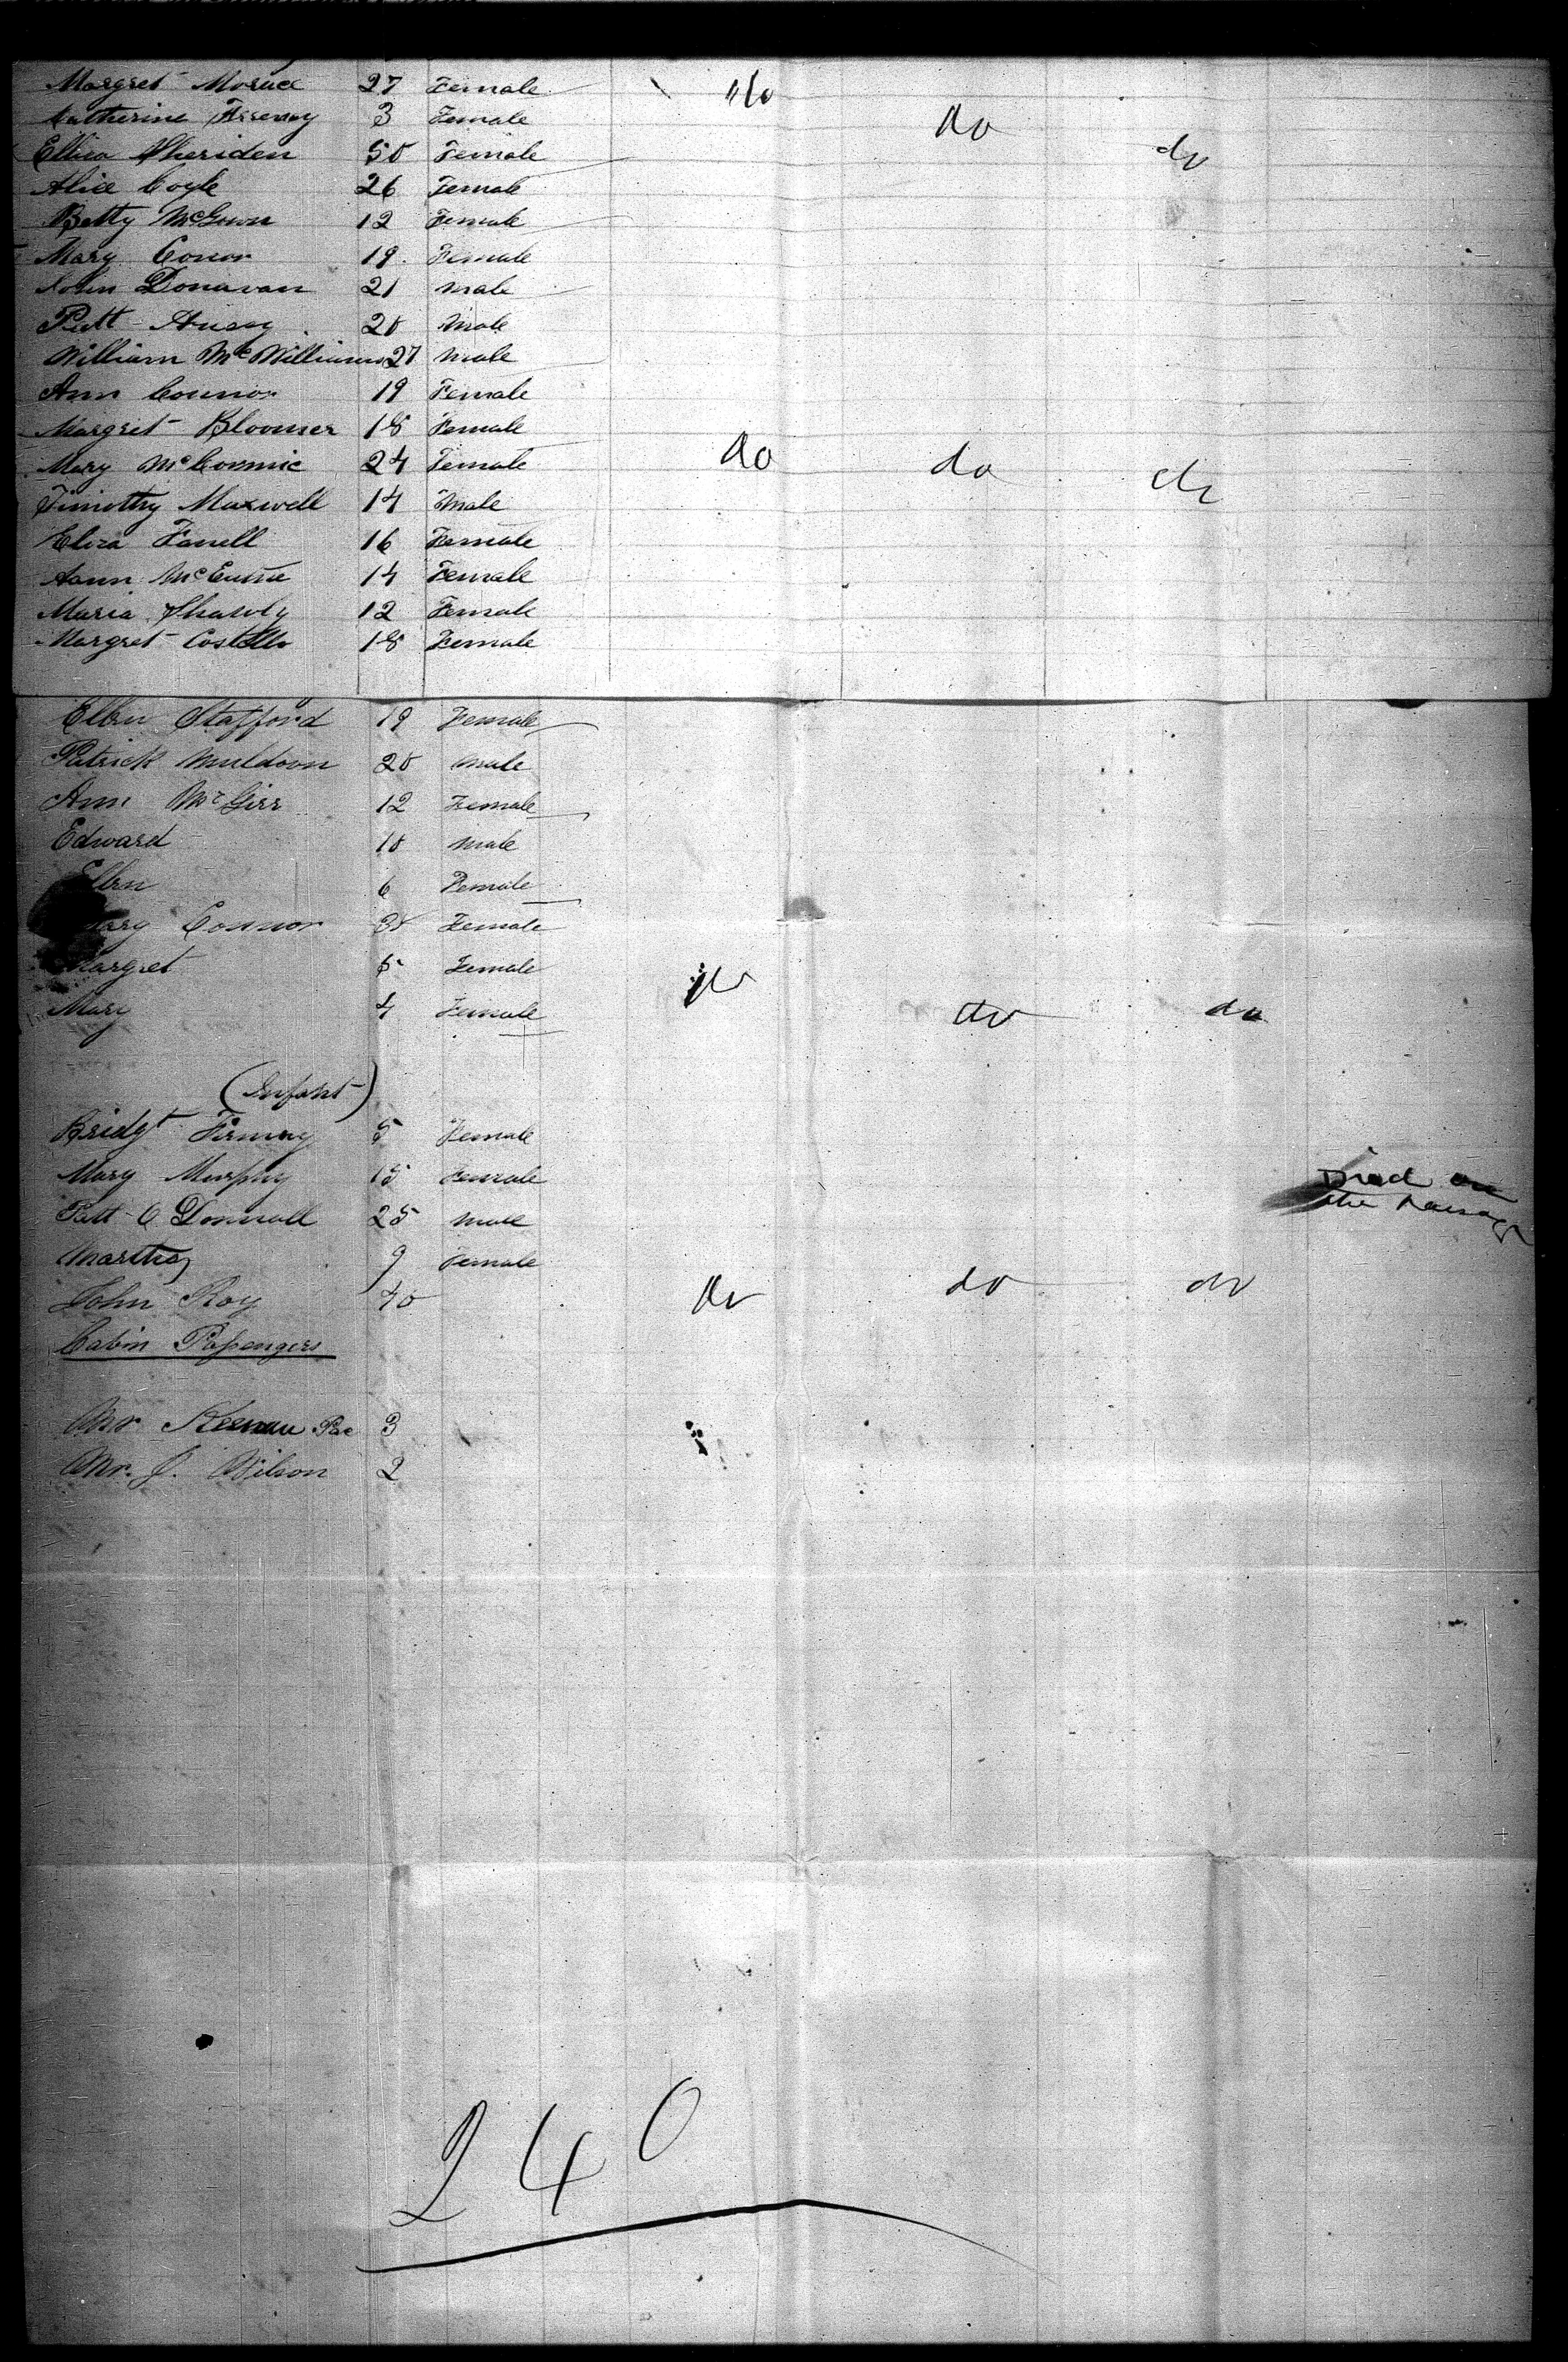 Margret 27 Female do
Catherine 3 Female do
Sheriden 50 Female do
Alice Coyle 26 Female
Betty McGown 12 Female
Mary Conor 19. Female
John Donavan 21 male
Patt 20 Male
William McWilliams 27 male
Ann Connor 19 Female
Margret Bloomer 18 Female
Mary McCormic 24 Female do do do
Timothy Maxwell 14 Male
Eliza Farrell 16 Female
Aann 14 Female
Maria 12 Female
Margret Costello 18 Female
Ellen Stafford 19 Female
Patrick Muldoon 20 male
Ann McGirr 12 Female
Edward 10 male
Ellen 6 Female
Mary Connor Female
Margret 5 Female do
Mary 4 Female do do
(Infant)
Bridgt 5 Female
Mary Murphy 15 Female Died on
the Passage
Patt O Donnall 25 male
9 Female
John Roy 40 do do do
Cabin Passengers
Keenan 3
Mr. J. Wilson 2
240